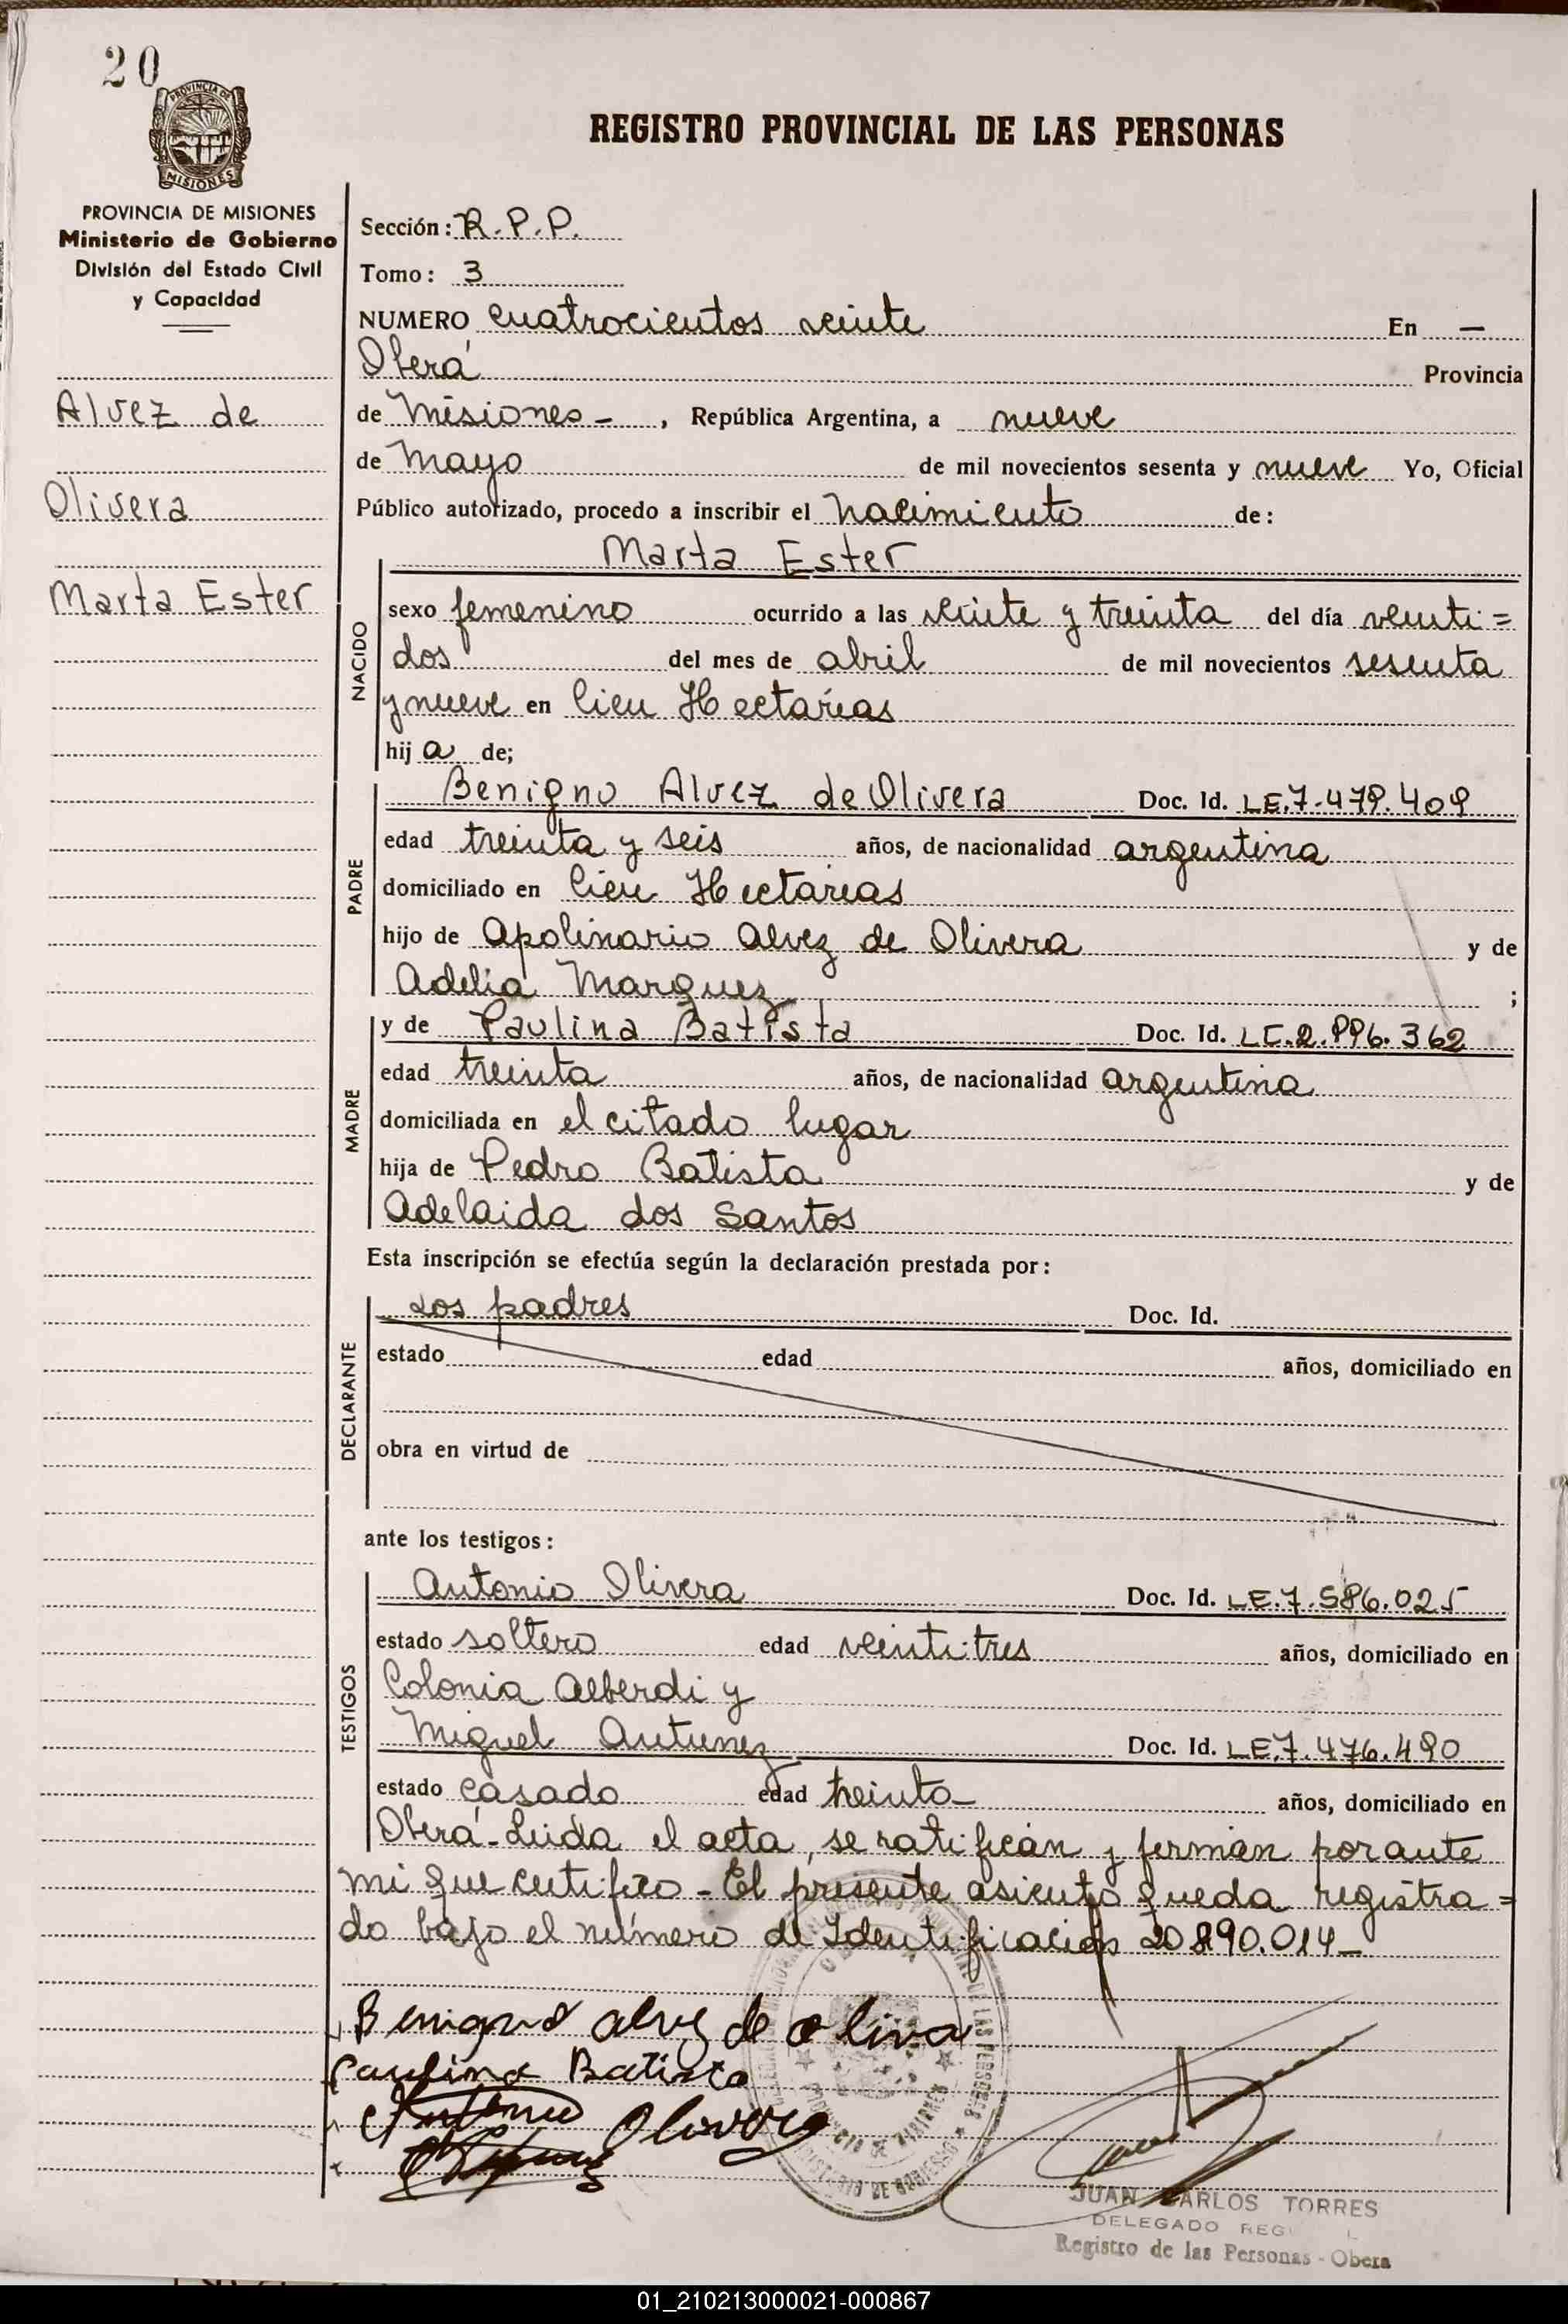 20
PROVINCIA DE MISIONES
PROVINCIA DE MISIONES
Ministerio de Gobierno
División del Estado Civil
y Capacidad
Alvez de
Olivera
Marta Ester
REGISTRO PROVINCIAL DE LAS PERSONAS
Sección: R.P.P.
Tomo: 3
NUMERO cuatrocientos veinte En —
Oberá Provincia
de Misiones - , República Argentina, a nueve
de Mayo de mil novecientos sesenta y nueve Yo, Oficial
Público autorizado, procedo a inscribir el Nacimiento de:
Marta Ester
NACIDO
sexo femenino ocurrido a las veinte y treinta del día veinti=
dos del mes de abril de mil novecientos sesenta
y nueve en Cien Hectáreas
hija de;
PADRE
Benigno Alvez de Olivera Doc. Id. LE.7.479.409
edad treinta y seis años, de nacionalidad argentina
domiciliado en Cien Hectareas
hijo de Apolinario Alvez de Olivera y de
Adelia Marquez ;
MADRE
y de Paulina Batista Doc. Id. LC.2.996.362
edad treinta años, de nacionalidad argentina
domiciliada en el citado lugar
hija de Pedro Batista y de
Adelaida dos Santos
Esta inscripción se efectúa según la declaración prestada por:
DECLARANTE
Los padres Doc. Id.
estado edad años, domiciliado en
obra en virtud de
ante los testigos:
TESTIGOS
Antonio Olivera Doc. Id. LE.7.586.025
estado soltero edad veintitres años, domiciliado en
Colonia Alberdi y
Miguel Antunez Doc. Id. LE.7.476.490
estado casado edad treinta - años, domiciliado en
Oberá - Leida el acta, se ratifican y firman por ante
mi que certifico - El presente asiento queda registra=
do bajo el número de Identificación 20890.014 -
Benigno alvez de oliva
Paulina Batista
Antonio Olivera
JUAN CARLOS TORRES
DELEGADO
Registro de las Personas - Obera
01_210213000021-000867